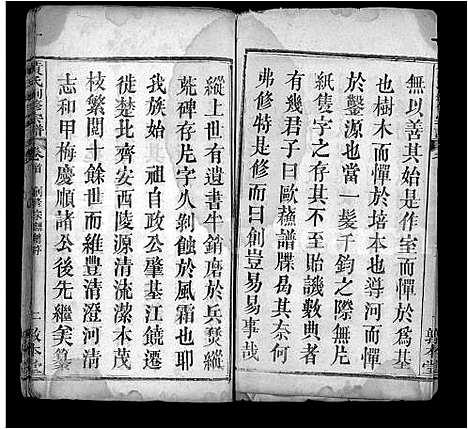 無以善其始是作室而憚於為基
也樹木而憚於培本也導河而憚
於鑿源也當一髮千鈞之際無片
紙隻字之存其不至貽譏數典者
有幾君子曰歐蘇譜牒曷其奈何
弗修特是修而曰創豈易易事哉
縱上世有遺書半銷磨於兵燹纔
荒碑存片字久剝蝕於風霜也耶
我族始祖自政公肇基江饒遷
徙楚北齊安西陵源清流潔木茂
枝繁閱十餘世而維豐清澄河清
志和甲梅慶順諸公後先繼矣纂
黃氏創修宗譜 卷首
上 敦本堂
敦本堂